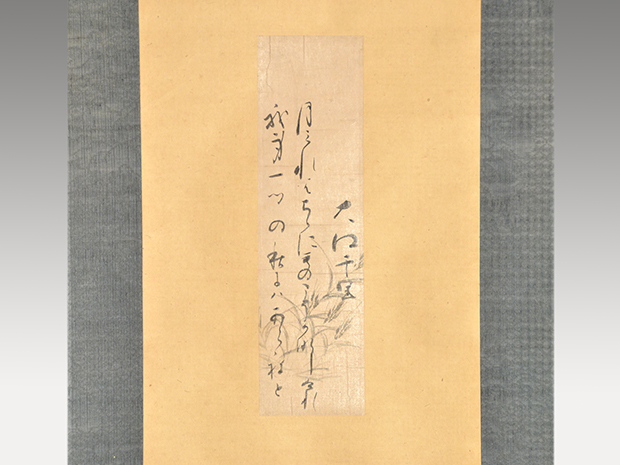 大江千里
月みれはちゝにものこそかなしけれ
我身一つの秋にハあらねと